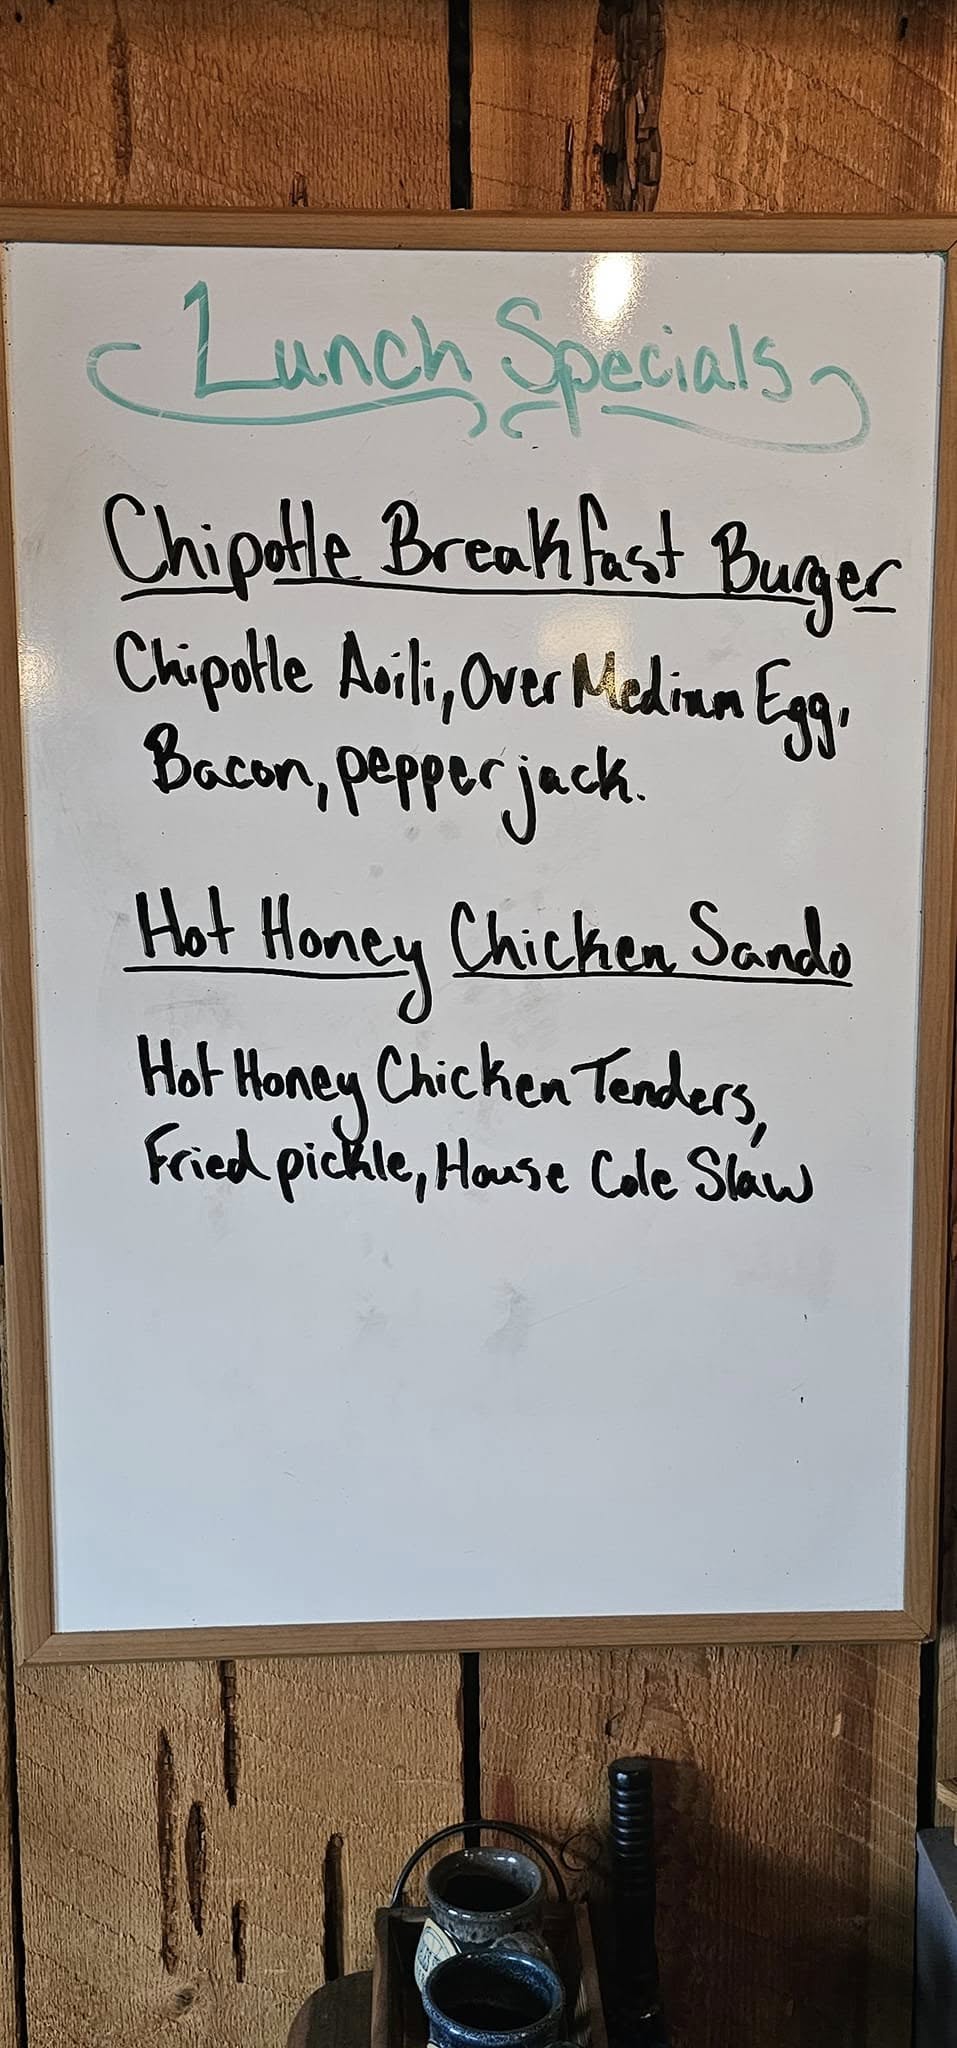 Lunch Specials
Chipotle Breakfast Burger
Chipotle Aoili, Over Medium Egg,
Bacon, pepper jack.
Hot Honey Chicken Sando
Hot Honey Chicken Tenders,
Fried pickle, House Cole Slaw